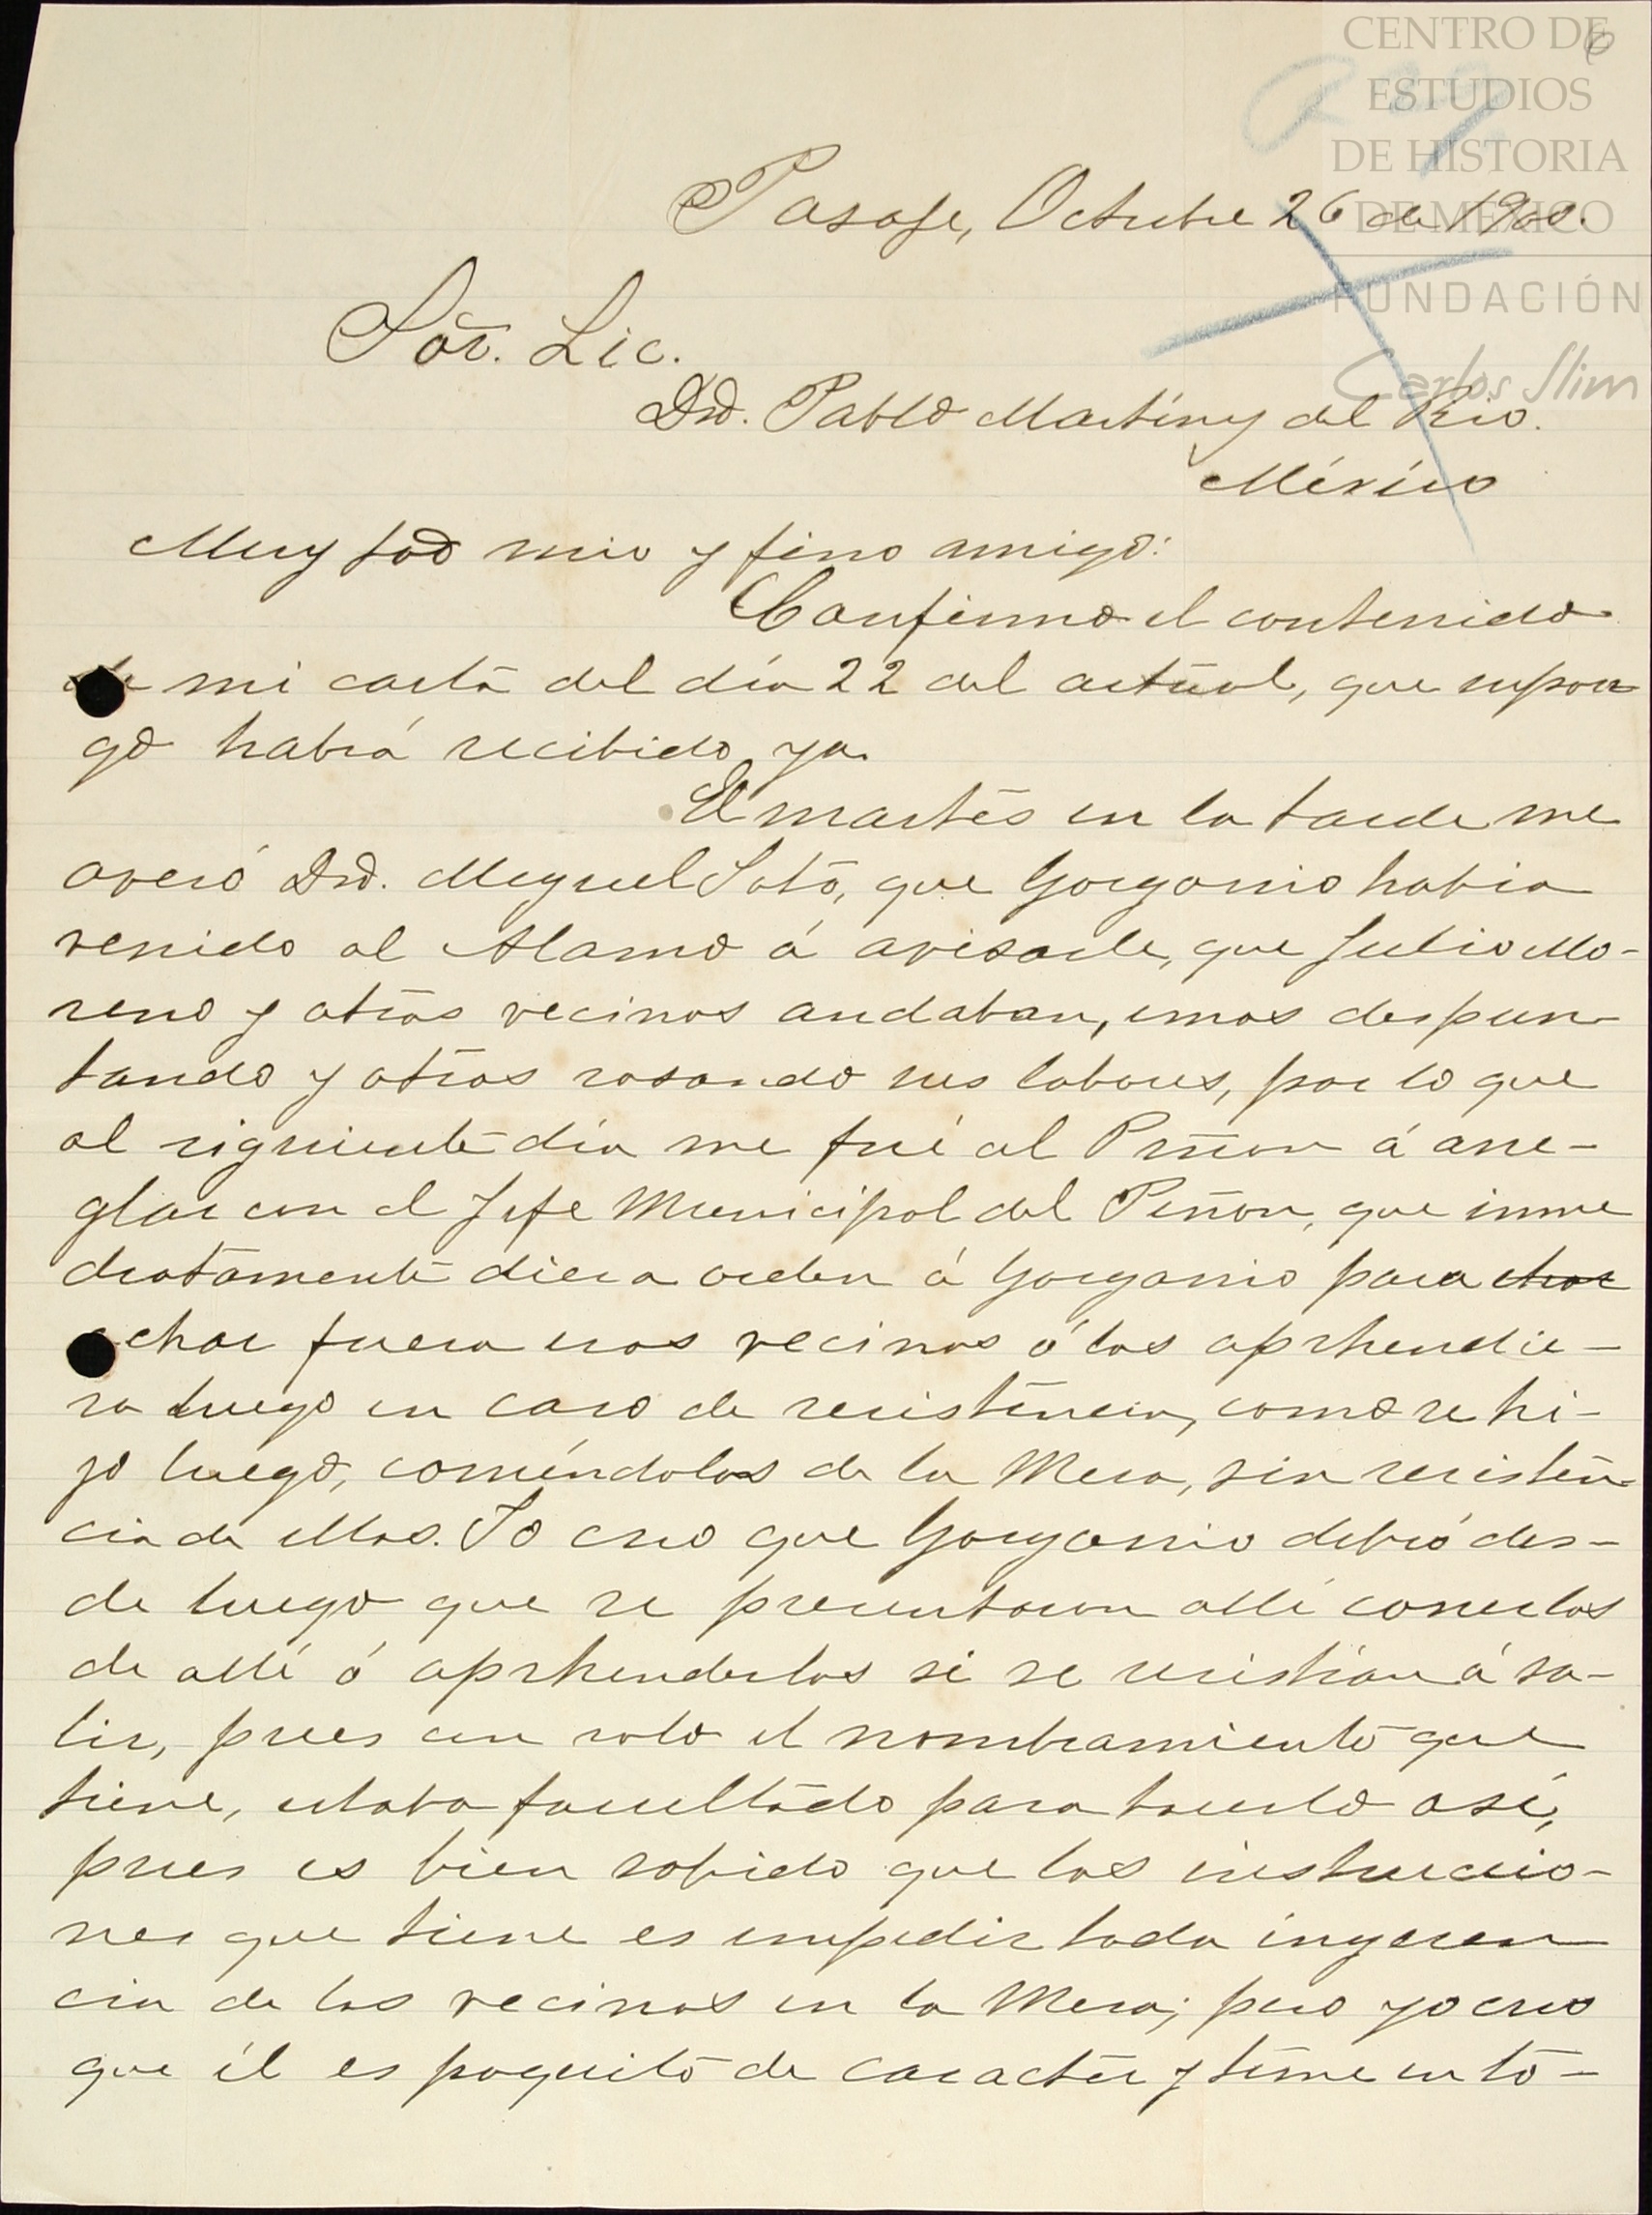 CENTRO DE
ESTUDIOS
DE HISTORIA
DE MÉXICO
FUNDACIÓN
Carlos Slim
6
Pasaje, Octubre 26 de 1900.
Sór. Lic.
Dn. Pablo Martínez del Rio.
México
Muy Sor mio y fino amigo:
Confirmo el contenido
de mi carta del día 22 del actual, que supon
go habrá recibido ya.
El martes en la tarde me
avisó Dn. Miguel Soto, que Gorgonio habia
venido al Alamo á avisarle, que Julio Mo-
reno y otros vecinos andaban, unos despun
tando y otros rosando sus labores, por lo que
al siguiente día me fué al Peñon á arre-
glar con el Jefe Municipal del Peñon, que inme
diatamente diera orden á Gorgonio para
echar fuera esos vecinos ó los aprhendie-
ra luego en caso de resistencia, como se hi-
zo luego, corriéndolos de la Mesa, sin resisten
cia de ellos. Yo creo que Gorgonio debió des-
de luego que se presentaron allí correrlos
de allí ó aprhenderlos si se resistian á sa-
lir, pues con solo el nombramiento que
tiene, estaba facultado para hacerlo así,
pues es bien sabido que las instruccio-
nes que tiene es impedir toda ingeren
cia de los vecinos en la Mesa; pero yo creo
que él es poquito de caracter y teme en to-